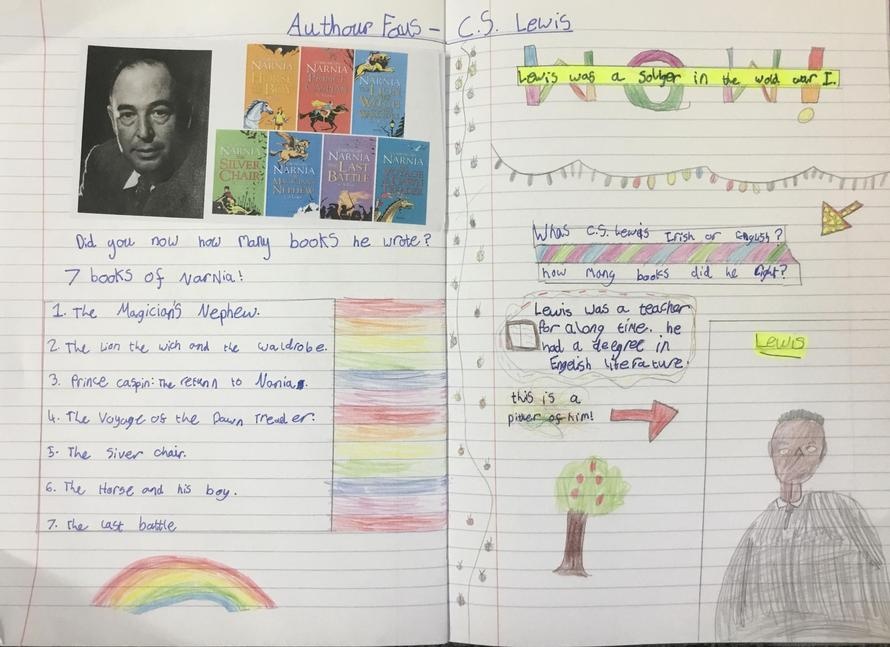 Authour Fous - C.S. Lewis
NARNIA
HORSE
BOY
NARNIA
PRINCE
CASPIAN
NARNIA
THE LION
WITCH
WARDROBE
NARNIA
THE
SILVER
CHAIR
NARNIA
THE
MAGICIAN'S
NEPHEW
NARNIA
THE LAST
BATTLE
NARNIA
VOYAGE
Did you now how many books he wrote?
7 books of Narnia!
1. The Magician's Nephew.
2. The Lion the wich and the waldrobe.
3. Prince caspin: The retunn to Nania.
4. The Voyage of the Dawn Treader.
5. The Siver chair.
6. The Horse and his boy.
7. The last battle
WOW!
Lewis was a solger in the wold war I.
Whas C.S. Lewis Irish or English?
how many books did he Right?
Lewis was a teacher
for along time. he
had a deegree in
English literature.
this is a
pitcer of him!
Lewis